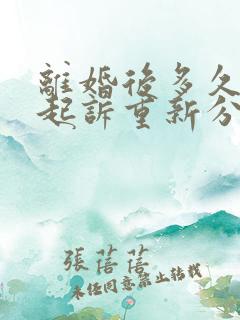 離婚後多久
起訴重新分
張蓓蓓
未經同意禁止轉載